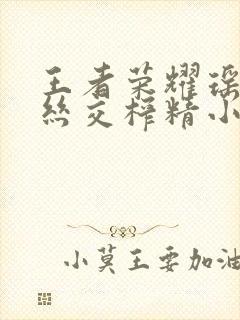 王者荣耀瑶
丝交榨精小
小莫王要加油